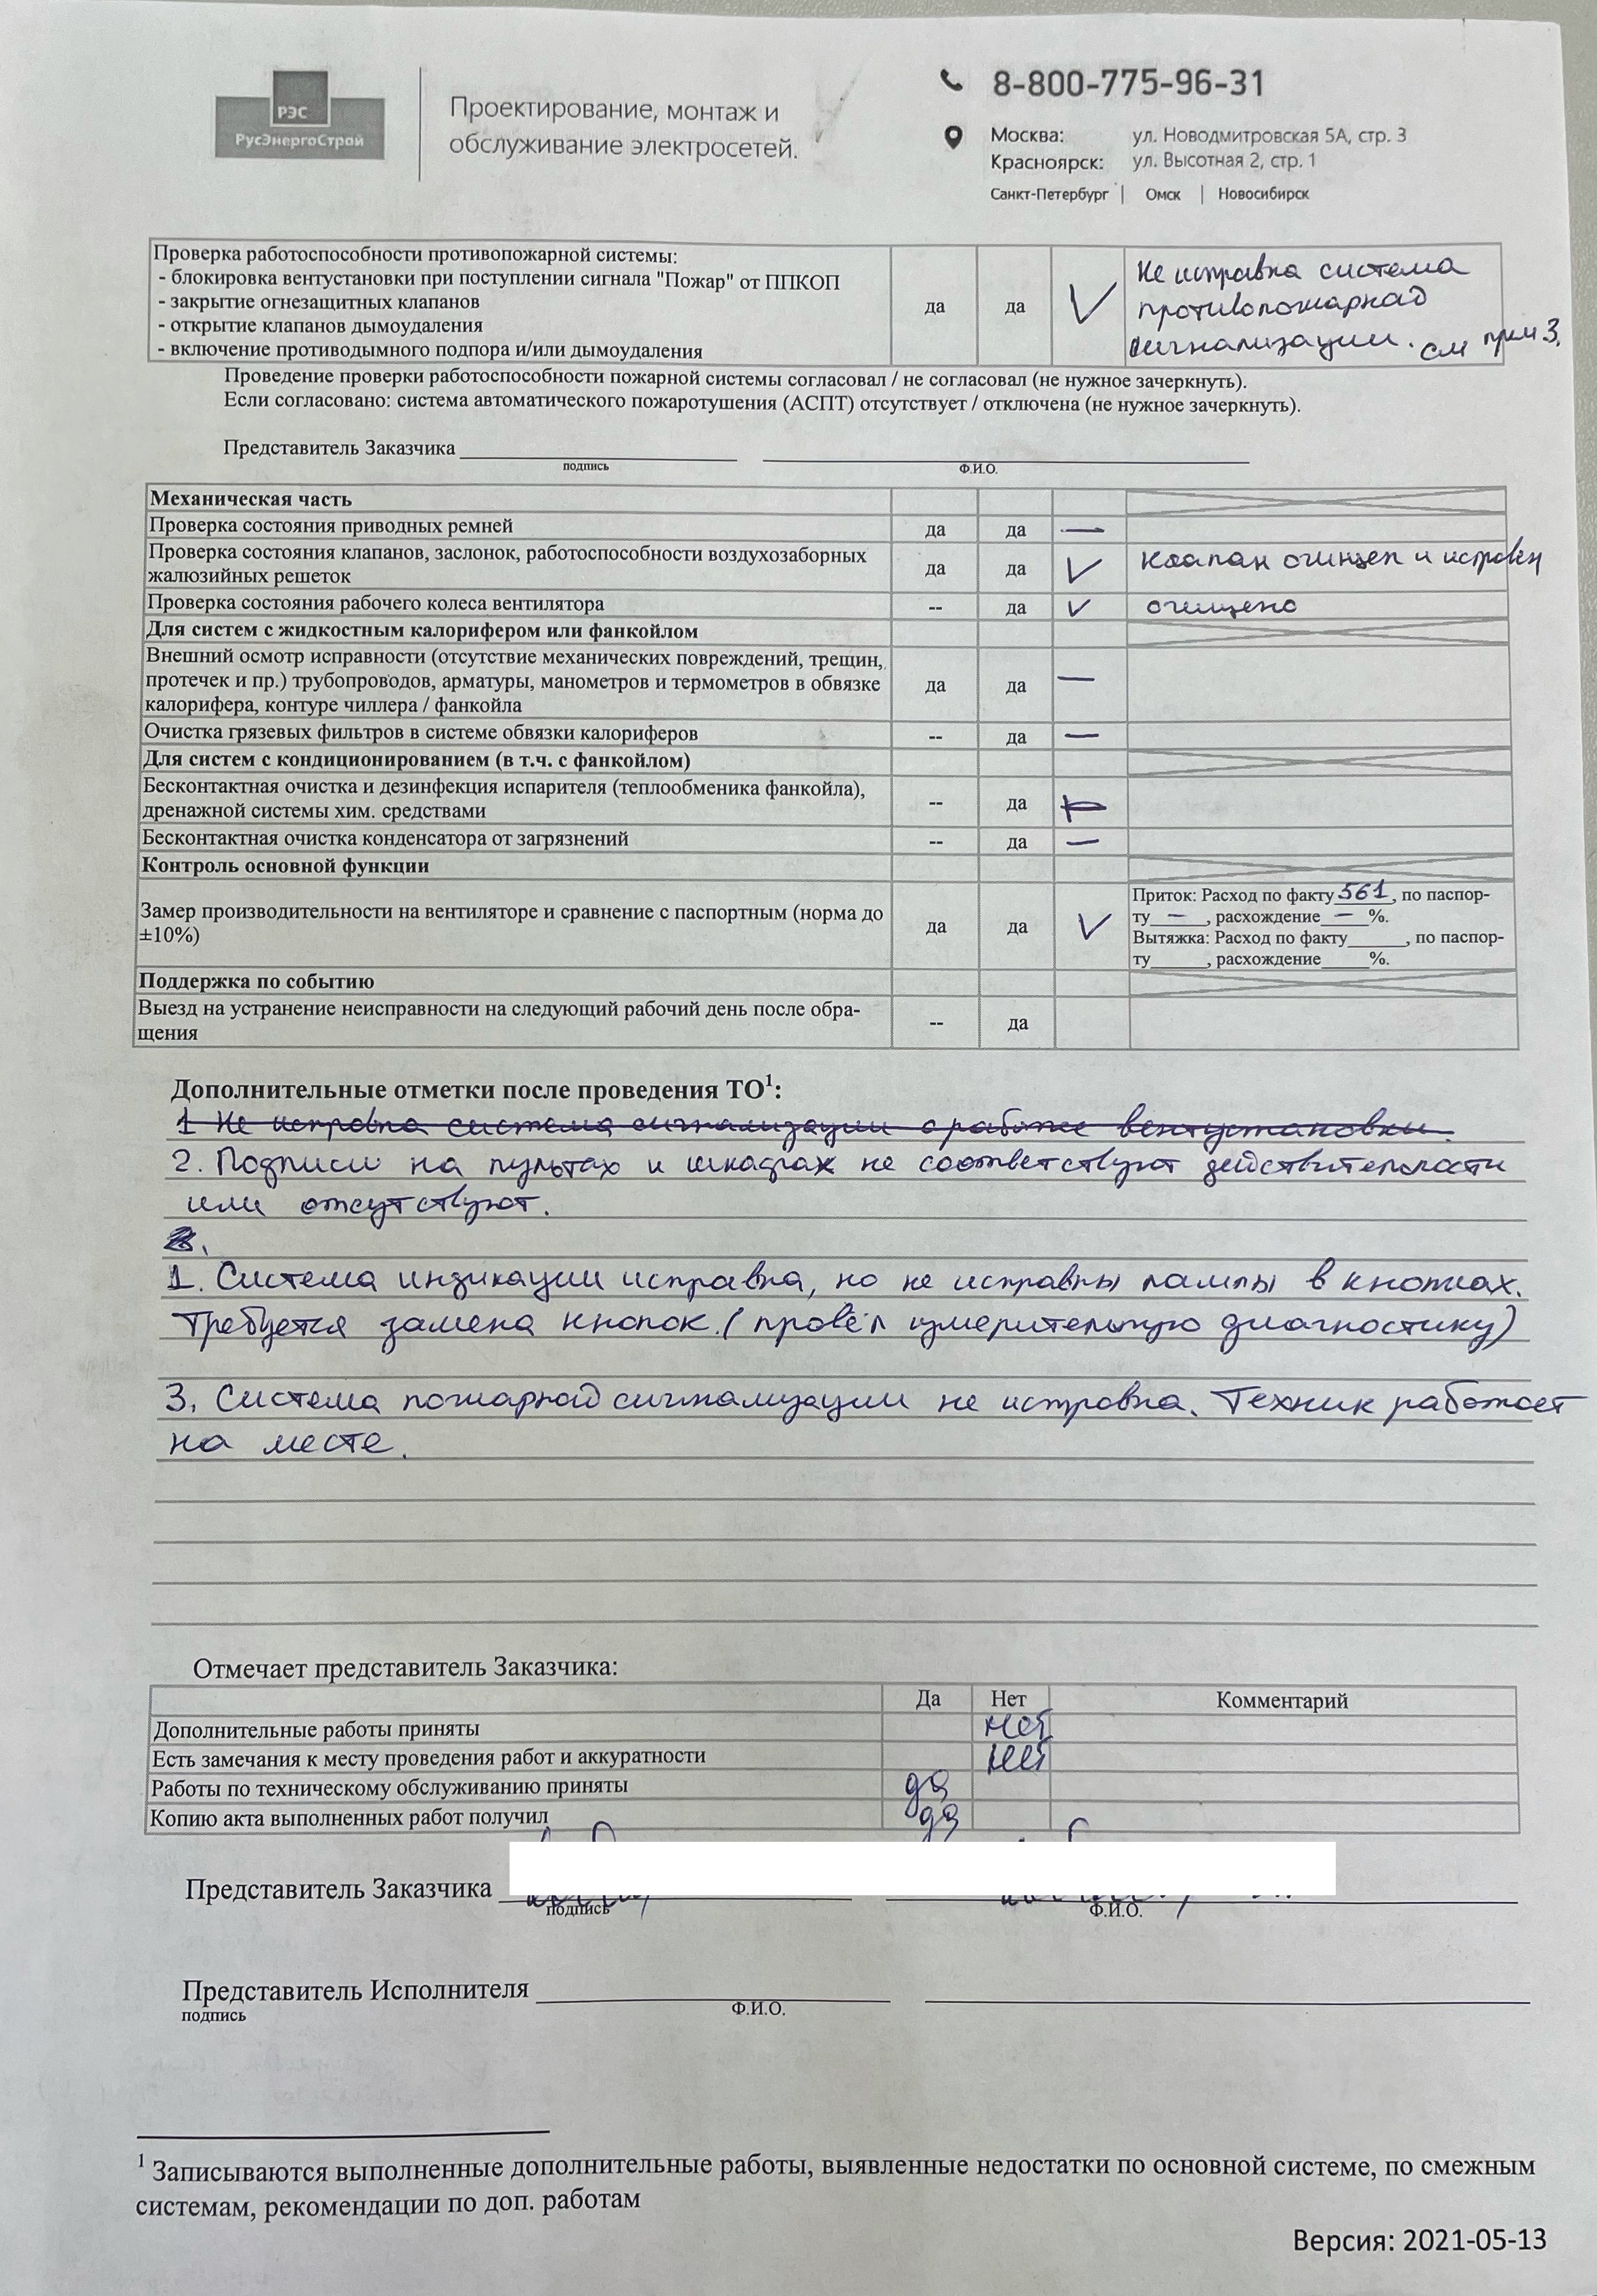 РЭС
РусЭнергоСтрой
Проектирование, монтаж и
обслуживание электросетей.
8-800-775-96-31
Москва: ул. Новодмитровская 5А, стр. 3
Красноярск: ул. Высотная 2, стр. 1
Санкт-Петербург | Омск | Новосибирск
Проверка работоспособности противопожарной системы:
- блокировка вентустановки при поступлении сигнала "Пожар" от ППКОП
- закрытие огнезащитных клапанов
- открытие клапанов дымоудаления
- включение противодымного подпора и/или дымоудаления
да да V
Не исправна система
противопожарной
сигнализации. см прим 3.
Проведение проверки работоспособности пожарной системы согласовал / не согласовал (не нужное зачеркнуть).
Если согласовано: система автоматического пожаротушения (АСПТ) отсутствует / отключена (не нужное зачеркнуть).
Представитель Заказчика
подпись Ф.И.О.
Механическая часть
Проверка состояния приводных ремней да да —
Проверка состояния клапанов, заслонок, работоспособности воздухозаборных
жалюзийных решеток да да V клапан очищен и исправен
Проверка состояния рабочего колеса вентилятора -- да V очищено
Для систем с жидкостным калорифером или фанкойлом
Внешний осмотр исправности (отсутствие механических повреждений, трещин,
протечек и пр.) трубопроводов, арматуры, манометров и термометров в обвязке
калорифера, контуре чиллера / фанкойла да да —
Очистка грязевых фильтров в системе обвязки калориферов -- да —
Для систем с кондиционированием (в т.ч. с фанкойлом)
Бесконтактная очистка и дезинфекция испарителя (теплообменика фанкойла),
дренажной системы хим. средствами -- да —
Бесконтактная очистка конденсатора от загрязнений -- да —
Контроль основной функции
Замер производительности на вентиляторе и сравнение с паспортным (норма до
±10%) да да V
Приток: Расход по факту 561, по паспор-
ту — , расхождение — %.
Вытяжка: Расход по факту______, по паспор-
ту______, расхождение_____%.
Поддержка по событию
Выезд на устранение неисправности на следующий рабочий день после обра-
щения -- да
Дополнительные отметки после проведения ТО1:
1 Не исправна система сигнализации о работе вентустановки.
2. Подписи на пультах и шкафах не соответствуют действительности
или отсутствуют.
1. Система индикации исправна, но не исправны лампы в кнопках.
Требуется замена кнопок. (провёл измерительную диагностику)
3. Система пожарной сигнализации не исправна. Техник работает
на месте.
Отмечает представитель Заказчика:
Да Нет Комментарий
Дополнительные работы приняты нет
Есть замечания к месту проведения работ и аккуратности нет
Работы по техническому обслуживанию приняты да
Копию акта выполненных работ получил да
Представитель Заказчика
подпись Ф.И.О.
Представитель Исполнителя
подпись Ф.И.О.
1 Записываются выполненные дополнительные работы, выявленные недостатки по основной системе, по смежным
системам, рекомендации по доп. работам
Версия: 2021-05-13